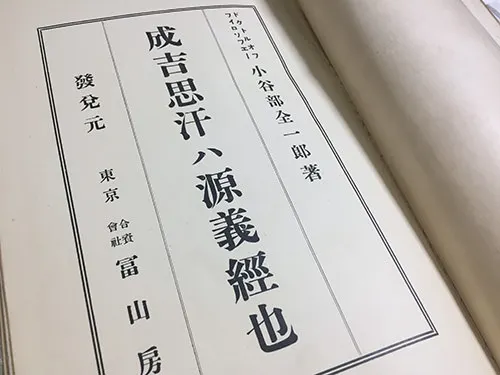 ドクトルオフ
フイロソフエー
小谷部全一郎著
成吉思汗ハ源義經也
發兌元
東京
合資
會社
冨山房